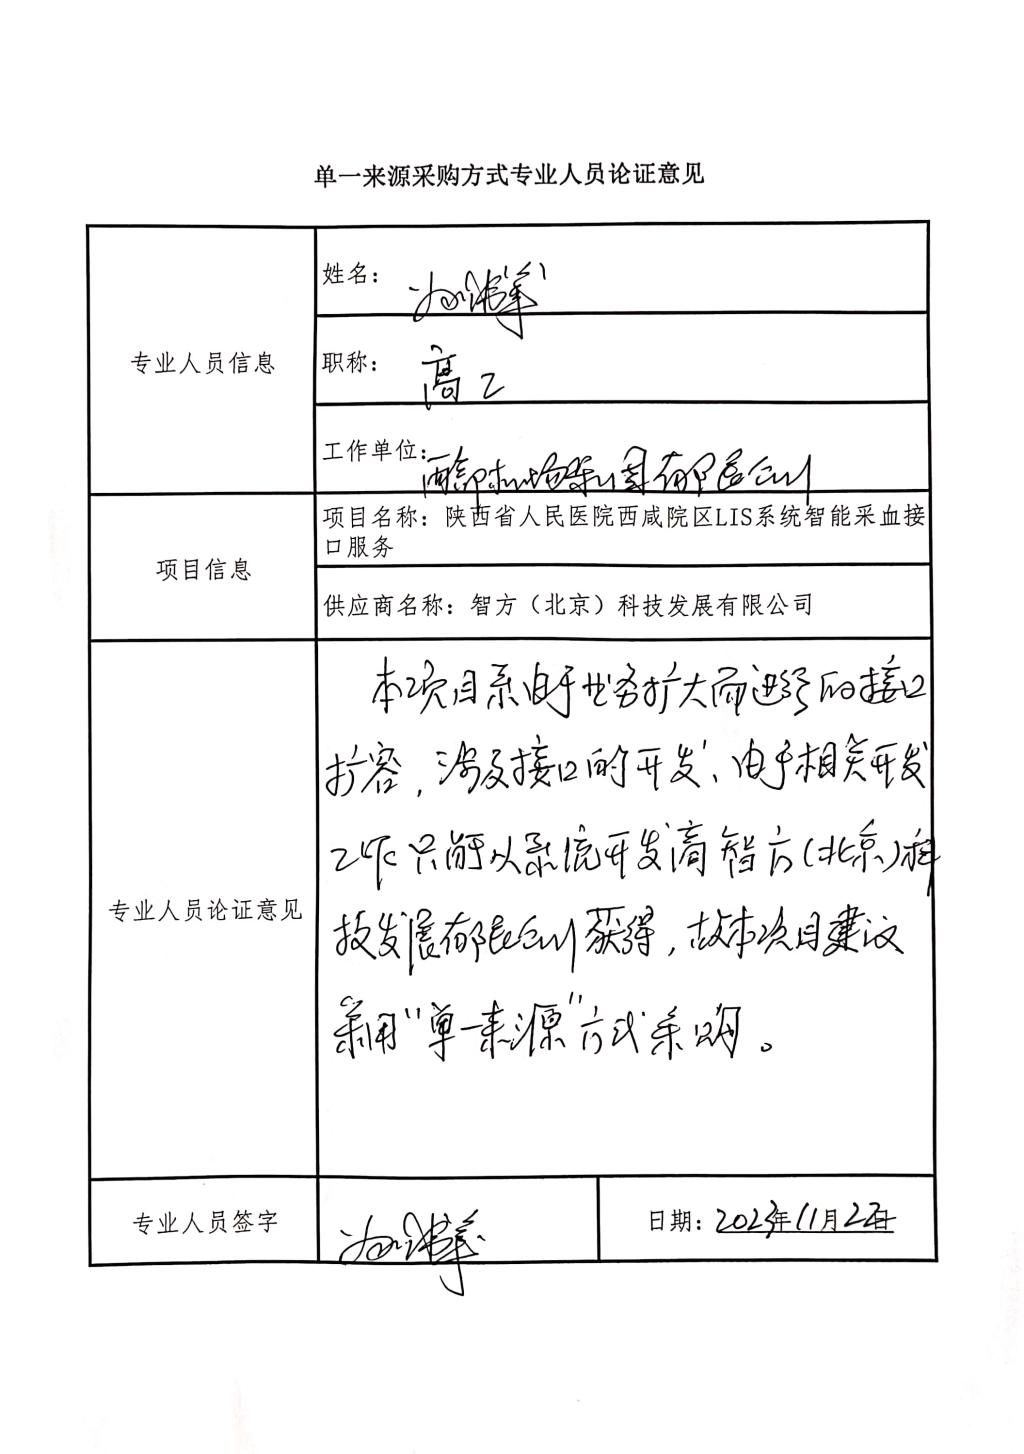 单一来源采购方式专业人员论证意见
专业人员信息
姓名：
职称： 高工
工作单位： 西部机场集团有限公司
项目信息
项目名称：陕西省人民医院西咸院区LIS系统智能采血接
口服务
供应商名称：智方（北京）科技发展有限公司
专业人员论证意见
本项目系由于业务扩大而进行的接口
扩容，涉及接口的开发、由于相关开发
工作只能从系统开发商智方(北京)科
技发展有限公司获得，故本项目建议
采用“单一来源”方式采购。
专业人员签字
日期：2023年11月22日